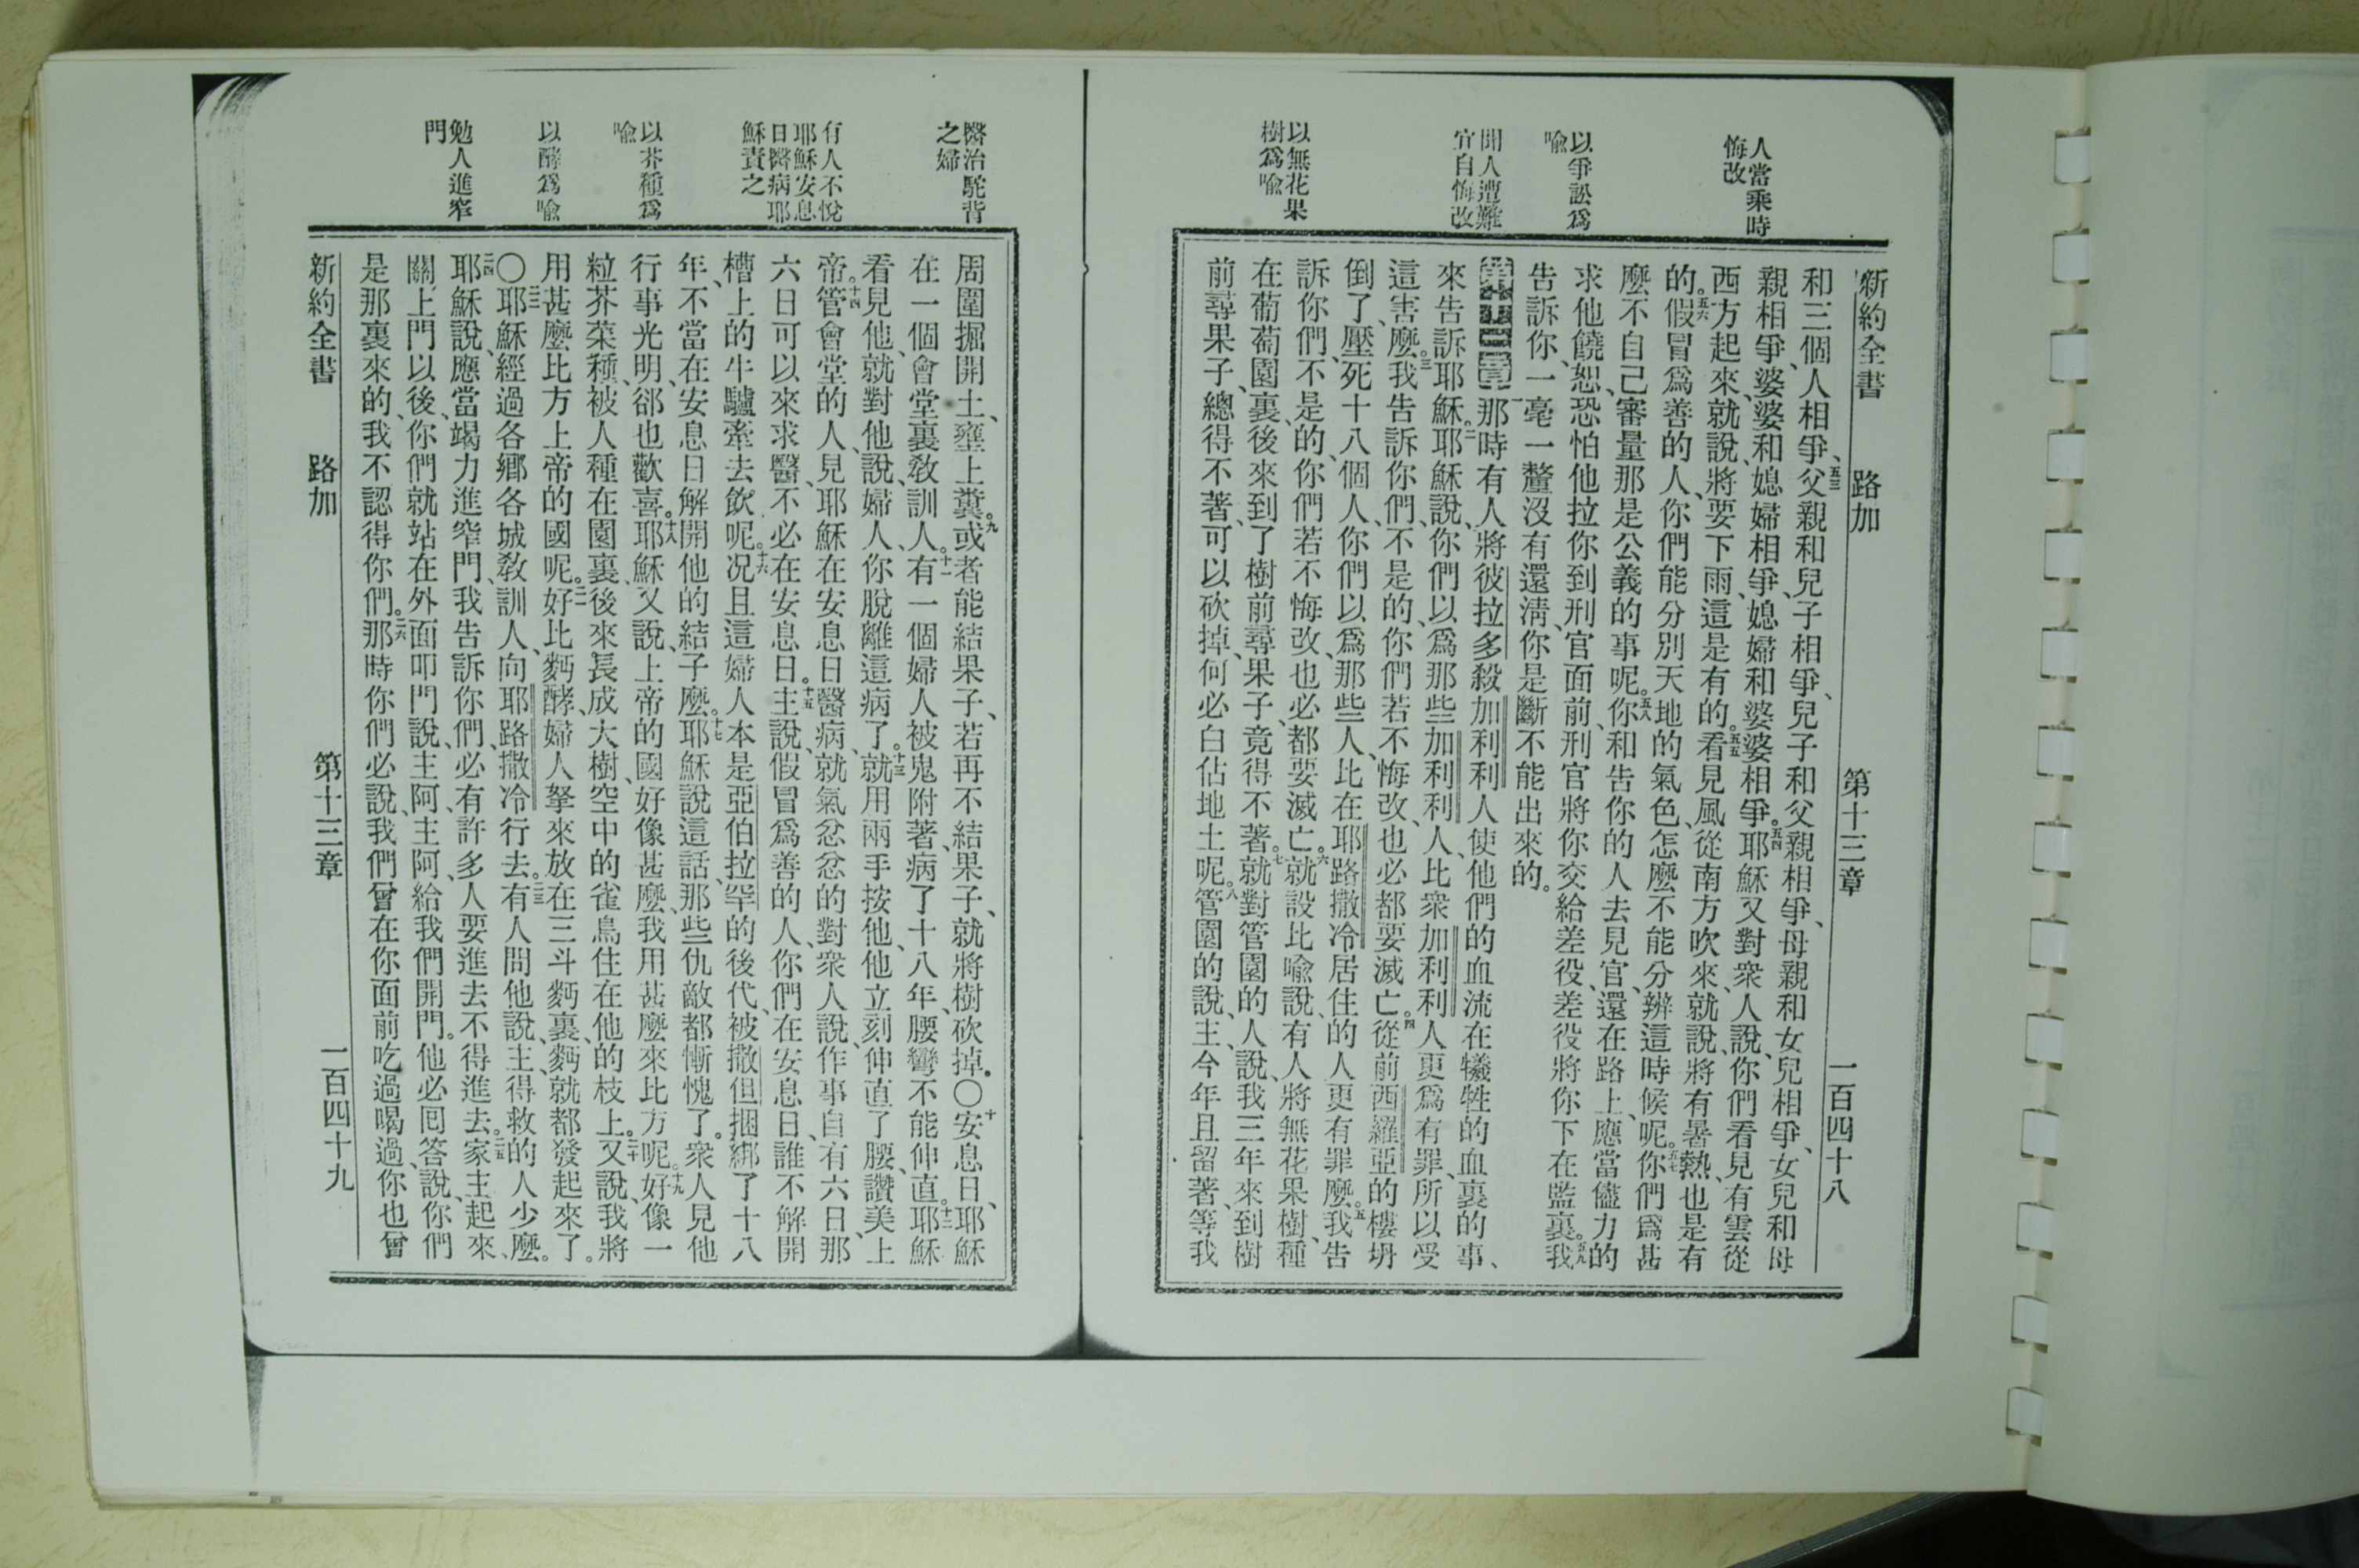 人當乘時
悔改
以爭訟爲
喩
聞人遭難
宜自悔改
以無花果
樹爲喩
新約全書 路加 第十三章 一百四十八
和三個人相爭、五三父親和兒子相爭、兒子和父親相爭、母親和女兒相爭、女兒和母
親相爭、婆婆和媳婦相爭、媳婦和婆婆相爭。五四耶穌又對衆人說、你們看見有雲從
西方起來、就說、將要下雨、這是有的。五五看見風、從南方吹來、就說、將有暑熱、也是有
的。五六假冒爲善的人、你們能分別天地的氣色、怎麼不能分辨這時候呢。五七你們爲甚
麼不自己審量那是公義的事呢。五八你和告你的人去見官、還在路上、應當儘力的
求他饒恕、恐怕他拉你到刑官面前、刑官將你交給差役、差役將你下在監裏。五九我
告訴你、一毫一釐沒有還淸、你是斷不能出來的。
第十三章一那時有人將彼拉多殺加利利人、使他們的血流在犧牲的血裏的事、
來告訴耶穌。二耶穌說、你們以爲那些加利利人、比衆加利利人更爲有罪、所以受
這害麼。三我告訴你們、不是的、你們若不悔改、也必都要滅亡。四從前西羅亞的樓坍
倒了、壓死十八個人、你們以爲那些人、比在耶路撒冷居住的人更有罪麼。五我告
訴你們、不是的、你們若不悔改、也必都要滅亡。六就設比喩說、有人將無花果樹、種
在葡萄園裏、後來到了樹前尋果子、竟得不著。七就對管園的人說、我三年來到樹
前尋果子、總得不著、可以砍掉、何必白佔地土呢。八管園的說、主、今年且留著、等我
醫治駝背
之婦
有人不悅
耶穌安息
日醫病耶
穌責之
以芥種爲
喩
以酵爲喩
勉人進窄
門
周圍掘開土、壅上糞。九或者能結果子、若再不結果子、就將樹砍掉。〇十安息日、耶穌
在一個會堂裏敎訓人。十一有一個婦人被鬼附著、病了十八年、腰彎不能伸直。十二耶穌
看見他、就對他說、婦人、你脫離這病了。十三就用兩手按他、他立刻伸直了腰、讚美上
帝。十四管會堂的人、見耶穌在安息日醫病、就氣忿忿的對衆人說、作事自有六日、那
六日可以來求醫、不必在安息日。十五主說、假冒爲善的人、你們在安息日、誰不解開
槽上的牛驢牽去飲呢。十六况且這婦人本是亞伯拉罕的後代、被撒但捆綁了十八
年、不當在安息日解開他的結子麼。十七耶穌說這話、那些仇敵都慚愧了。衆人見他
行事光明、卻也歡喜。十八耶穌又說、上帝的國、好像甚麼、我用甚麼來比方呢。十九好像一
粒芥菜種、被人種在園裏、後來長成大樹、空中的雀鳥住在他的枝上。二十又說、我將
用甚麼比方上帝的國呢。二一好比麪酵、婦人拏來放在三斗麪裏、麪就都發起來了。
〇二二耶穌經過各鄕各城敎訓人、向耶路撒冷行去。二三有人問他說、主、得救的人少麼。
二四耶穌說、應當竭力進窄門、我告訴你們、必有許多人要進去、不得進去。二五家主起來、
關上門以後、你們就站在外面叩門、說、主阿、主阿、給我們開門。他必囘答說、你們
是那裏來的、我不認得你們。二六那時你們必說、我們曾在你面前吃過喝過、你也曾
新約全書 路加 第十三章 一百四十九